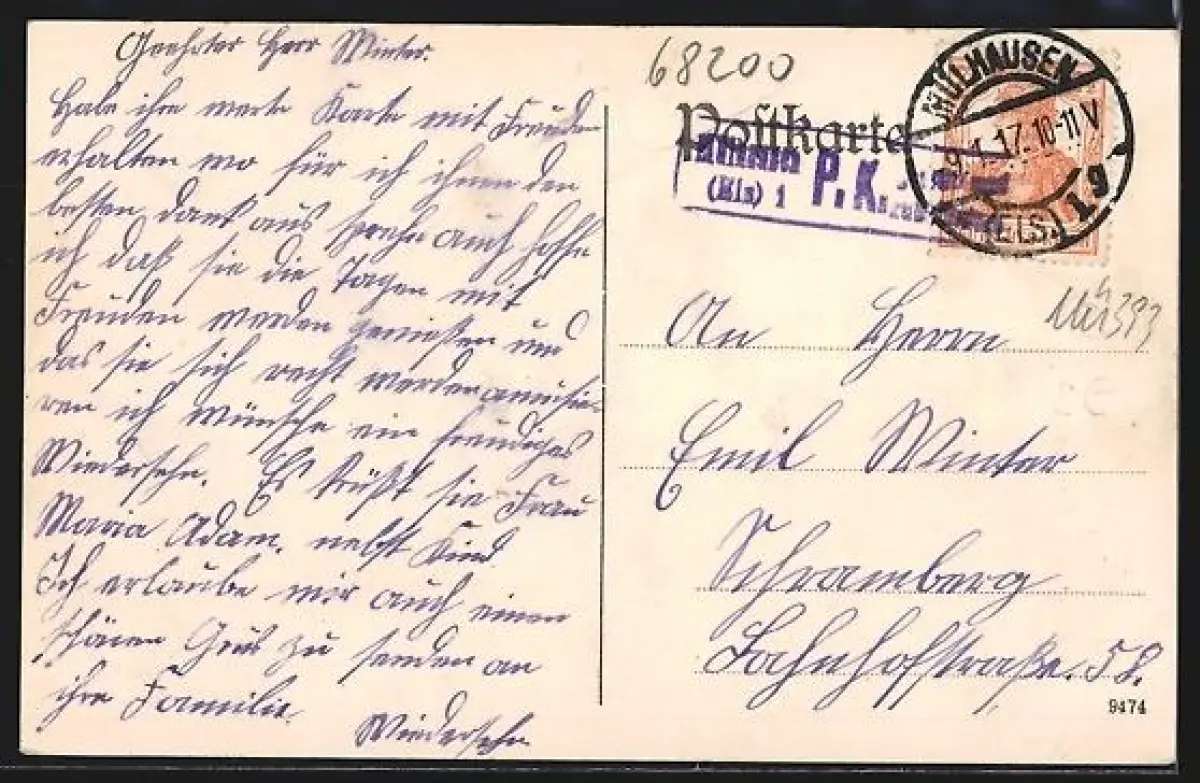 Geehrter Herr Winter.
Habe ihre werte Karte mit Freuden
erhalten wo für ich ihnen den
besten dank aus spreche auch hoffe
ich daß sie die Tagen mit
Freuden werden genießen und
das sie sich recht werden amüsie-
ren ich wünsche ein freudiges
Wiedersehn. Es Grüßt sie Frau
Maria Adam. nebst Kind
Ich erlaube mir auch einen
schönen Grus zu senden an
ihre Familie.
Wiedersehn
68200
Postkarte
MÜLHAUSEN
9.1.17.10-11V
(ELS.) 1g
(Els) 1 P.K.
An Herrn
Emil Winter
Schramberg
Bahnhofstraße. 58.
9474